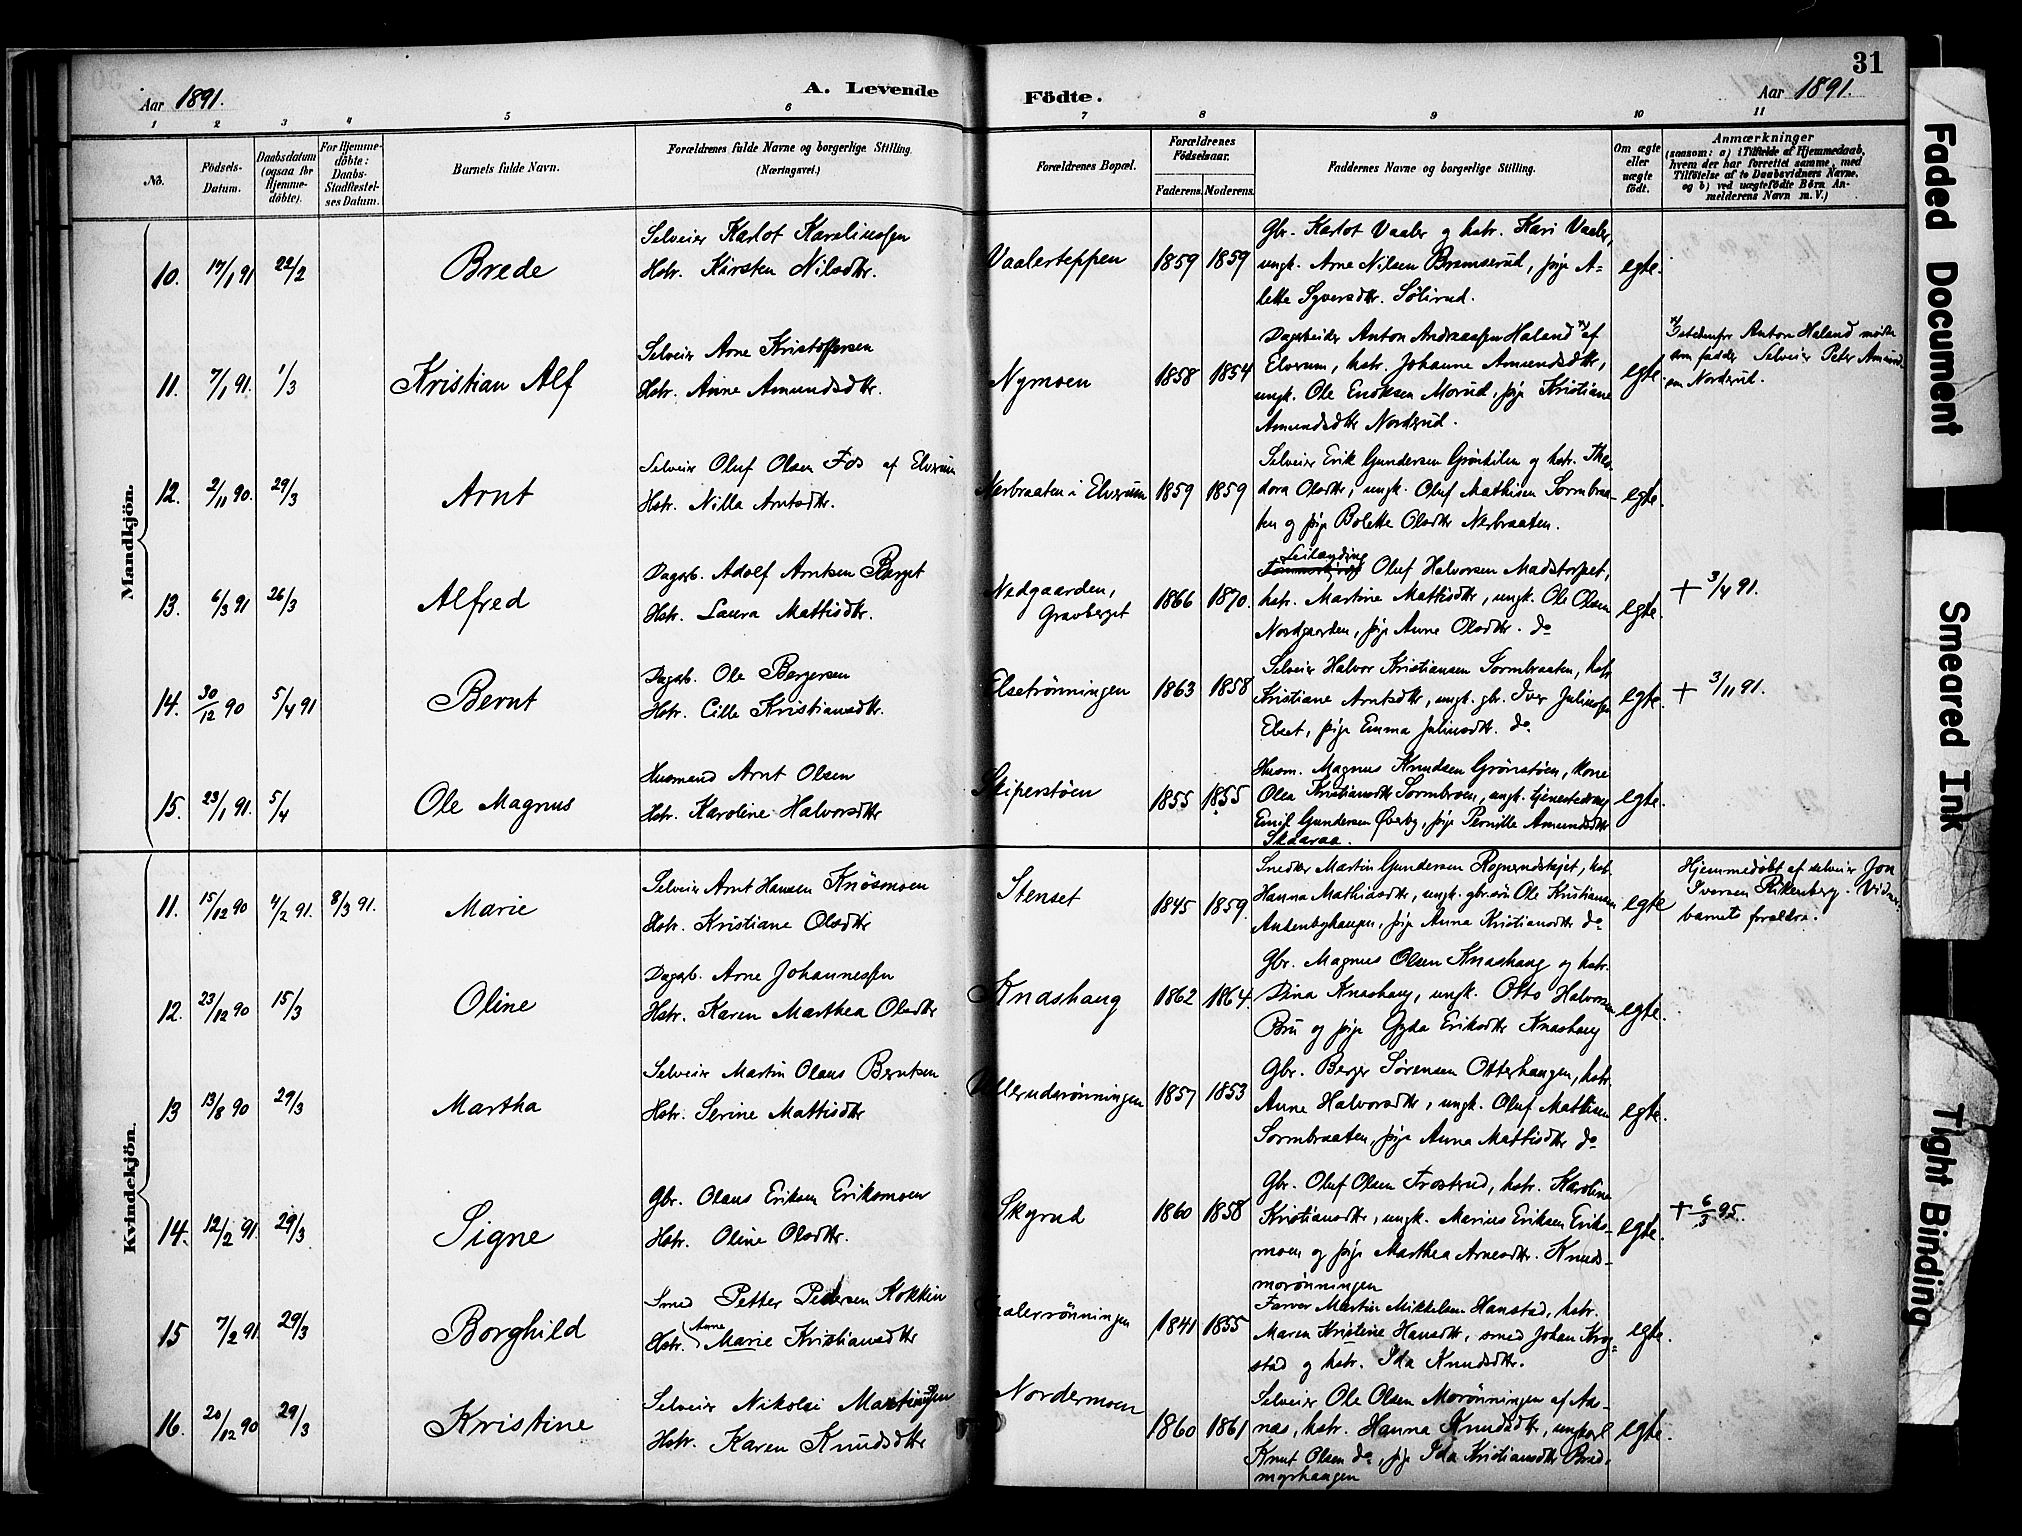 31
Aar 1891.
A. Levende Födte.
Aar 1891.
1 2 3 4 5 6 7 8 9 10 11
No.
Födsels-Datum.
Daabsdatum (ogsaa for Hjemmedöbte).
For Hjemmedöbte: Daabs-Stadfæstelses Datum.
Barnets fulde Navn.
Forældrenes fulde Navne og borgerlige Stilling. (Næringsvei.)
Forældrenes Bopæl.
Forældrenes Födselsaar.
Faderens. Moderens.
Faddernes Navne og borgerlige Stilling.
Om ægte eller uægte födt.
Anmærkninger
(saasom: a) i Tilfælde af Hjemmedaab,
hvem der har forrettet samme, med
Tilföielse af to Daabsvidners Navne,
og b) ved uægtefödte Börn An-
melderens Navn m. V.)
Mandkjön.
10. 17/1 91 22/2 Brede
Selveier Karlot Karelinssen
Hstr. Kirsten Nilsdtr.
Vaalerteppen 1859 1859
Gbr. Karlot Vaaler og hstr. Kari Vaaler,
ungk. Arne Nilsen Bramserud, pige A-
lette Syversdtr. Sölirud.
egte.
11. 7/1 91. 1/3 Kristian Alf
Selveier Arne Kristoffersen
Hstr. Anne Amundsdtr.
Nymoen 1858 1854
Dagarbeider Anton Andreassen Haland af
Elverum, hstr. Johanne Amundsdtr,
ungk. Ole Eriksen Morud, pige Kristiane
Amundsdtr Nordsrud.
egte.
Istedenfor Anton Haland mödte
som fadder Selveier Peter Amund
sen Nordsrud.
12. 2/11 90. 29/3 Arnt
Selveier Oluf Olsen Fos af Elverum
Hstr. Nilla Arntsdtr.
Nerbraaten i Elverum 1859 1859
Selveier Erik Gundersen Grönkilen og hstr. Theo
dora Olsdtr, ungk. Oluf Mathisen Sormbraa-
ten og pige Bolette Olsdtr Nerbraaten.
egte.
13. 6/3 91 26/3 Alfred
Dagarb. Adolf Arntsen Berget
Hstr. Laura Mattisdtr.
Nedgaarden,
Gravberget
1866 1870.
Leilænding
Oluf Halvorsen Madstorpet,
hstr. Martine Mattisdtr, ungk. Ole Olsen
Nordgaarden, pige Anne Olsdtr. do
egte.
+ 3/4 91.
14. 30/12 90 5/4 91 Bernt
Dagarb. Ole Bergersen
Hstr. Cille Kristiansdtr.
Elsetrönningen 1863 1858
Selveier Halvor Kristiansen Sormbraaten, hstr
Kristiane Arntsdtr, ungk. gbr. Iver Juliussen
Elset, pige Emma Juliusdtr. do
egte.
+ 3/11 91.
15. 23/1 91. 5/4 Ole Magnus
Husmand Arnt Olsen
Hstr. Karoline Halvorsdtr
Skiperstöen 1855 1855
Husm. Magnus Knudsen Grönstöen, kone
Olea Kristiansdtr Sormbroen, ungk. tjenestedreng
Emil Gundersen Överby, pige Pernille Amundsdtr
Skaaraa.
egte.
Kvindekjön.
11. 15/12 90 4/2 91. 8/3 91. Marie
Selveier Arnt Hansen Knösmoen
Hstr. Kristiane Olsdtr
Stenset 1845 1859.
Snedker Martin Gundersen Rognerudshöjet, hstr
Hanna Mathisdtr, ungk. gbr.sön Ole Kristiansen
Andenbyhaugen, pige Anna Kristiansdtr do
egte
Hjemmedöbt af selveier Jon
Iversen Rikenberg. Vidner:
barnets foreldre.
12. 23/12 90 15/3 Oline
Dagarb. Arne Johannessen
Hstr. Karen Marthea Olsdtr
Knashaug 1862 1864.
Gbr. Magnus Olsen Knashaug og hstr.
Dina Knashaug, ungk. Otto Halvorsen
Bru og pige Gyda Eriksdtr Knashaug
egte.
13 13/8 90 29/3 Martha
Selveier Martin Olaus Berntsen
Hstr. Serine Mattisdtr
Ullerudsrönningen 1857 1853
Gbr. Berger Sörensen Otterhaugen, hstr.
Anne Halvorsdtr, ungk. Oluf Mathisen
Sormbraaten, pige Anna Mattisdtr do
egte.
14. 12/2 91. 29/3 Signe
Gbr. Olaus Eriksen Eriksmoen
Hstr. Oline Olsdtr.
Skyrud 1860 1858
Gbr. Oluf Olsen Frostrud, hstr. Karoline
Kristiansdtr, ungk. Marius Eriksen Eriks-
moen og pige Marthea Arnesdtr. Knuds-
morönningen
egte.
+ 6/3 95.
15 7/2 91. 29/3 Borghild
Smed Petter Pedersen Kokkin
Hstr. Anne Marie Kristiansdtr
Vaalerrönningen 1841 1855
Farver Martin Mikkelsen Hanstad, hstr.
Maren Kristine Hansdtr, smed Johan Krog-
stad og hstr. Ida Knudsdtr.
egte.
16. 20/12 90 29/3 Kristine
Selveier Nikolai Martinussen
Hstr. Karen Knudsdtr
Nordermoen 1860 1861
Selveier Ole Olsen Morönningen af Aas-
nes, hstr. Hanna Knudsdtr, ungkarl
Knut Olsen do, pige Ida Kristiansdtr Brad-
myrhaugen
egte.
Faded Document
Smeared Ink
Tight Binding